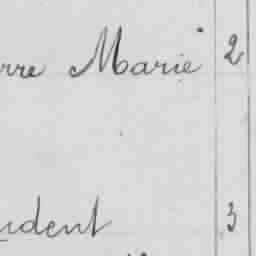 rre Marie 2
udent 3